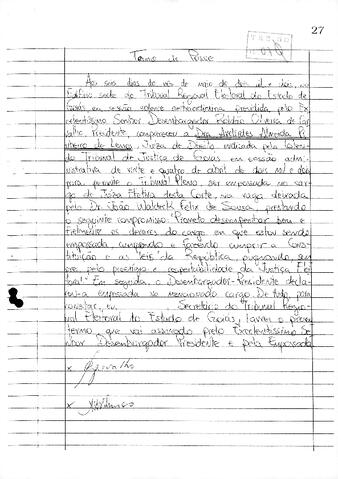 27
Termo de Posse
Ao seis dias do mês de maio de dois mil e dois, no
Edifício sede do Tribunal Regional Eleitoral do Estado de
Goiás, em sessão solene extraordinária, presidida pelo Ex
celentíssimo Senhor Desembargador Roldão Oliveira de Car
valho, Presidente, compareceu a Dra. Avelirdes Almeida Pi
nheiro de Lemos, Juíza de Direito indicada pelo
Tribunal de Justiça de Goiás em sessão admi
nistrativa de vinte e quatro de abril de dois mil e dois
para, perante o Tribunal Pleno, ser empossada no car
go de Juíza Efetiva desta Corte, na vaga deixada
pelo Dr. João Waldeck Felix de Sousa, prestando
o seguinte compromisso: "Prometo desempenhar bem e
fielmente os deveres do cargo em que estou sendo
empossada, cumprindo e fazendo cumprir a Cons
tituição e as leis da República, pugnando, sem
pre, pelo prestígio e respeitabilidade da Justiça Elei
toral". Em seguida, o Desembargador-Presidente decla
rou-a empossada no mencionado cargo. Do que, para
constar, eu, Secretário do Tribunal Regio
nal Eleitoral do Estado de Goiás, lavrei o presente
termo, que vai assinado pelo Excelentíssimo Se
nhor Desembargador Presidente e pela Empossada
x
x